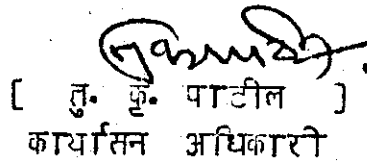 [ तु. कृ. पाटील ]
कार्यासन अधिकारी